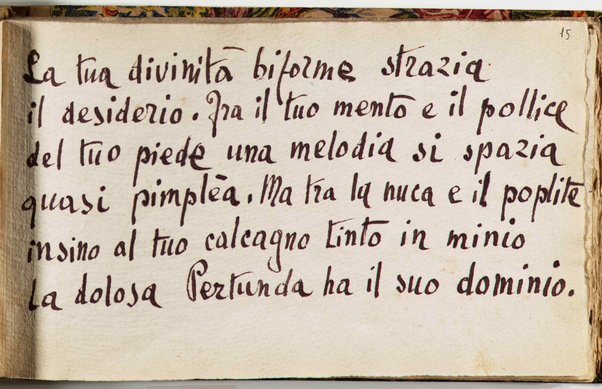 15
La tua divinità biforme strazia
il desiderio. Fra il tuo mento e il pollice
del tuo piede una melodia si spazia
quasi pimplèa. Ma tra la nuca e il poplite
insino al tuo calcagno tinto in minio
la dolosa Pertunda ha il suo dominio.